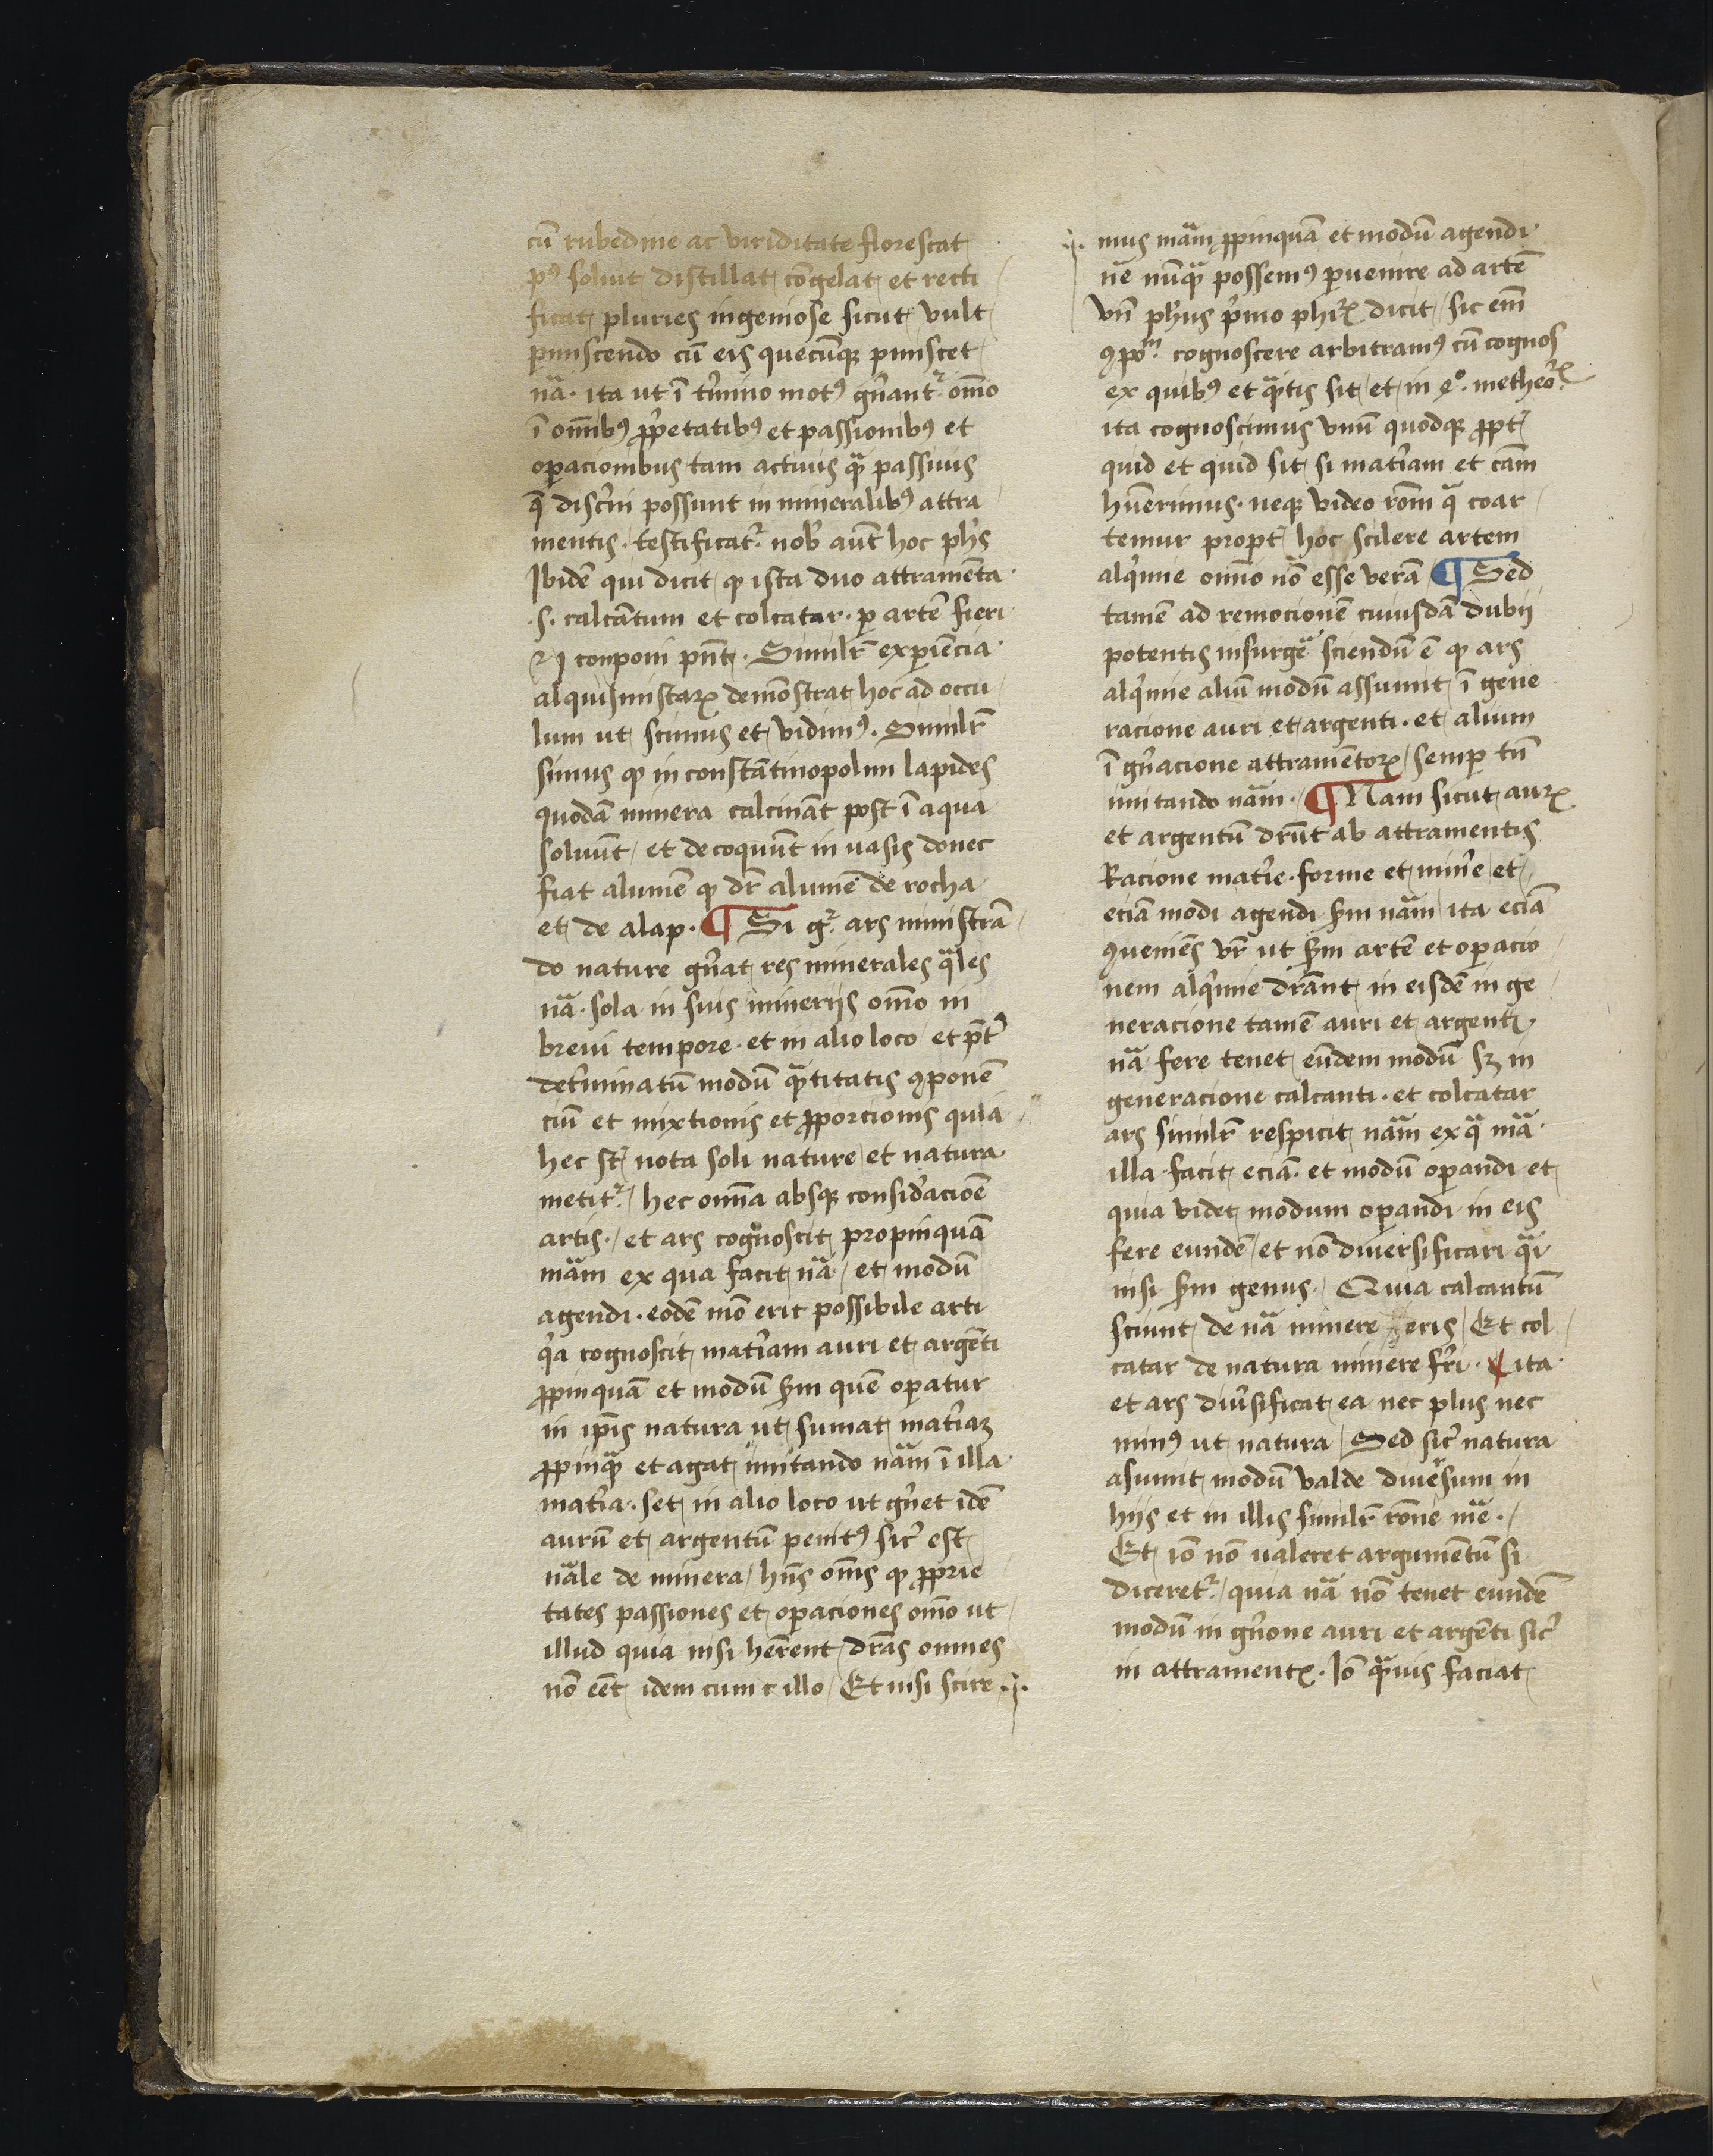 cū rubedine ac viriditate florescat
pꝰ soluit distillat cōgelat et recti
ficat pluries ingeniose sicut vult
pmiscendo cū eis quecūqꝫ pmiscet
nā · ita ut ī tīmino motꝰ gn̄antᷣ om̄o
ī om̄ibꝰ ꝓpetatibꝰ et passionibꝰ et
oꝑacionibus tam actiuis qᷓ passiuis
q̄ disc̄ni possunt in mineralibꝰ attra
mentis · testificatᷣ nob̄ aūt hoc ph̄s
Ibidē qui dicit ꝙ ista duo attramēta
·s· calcātum et colcatar · ꝑ artē fieri
⁊ conponi pn̄t · Similr̄ exꝑiēcia
alquismistaꝝ demōstrat hoc ad occu
lum ut scimus et vidimꝰ · Similr̄
simus ꝙ in constātinopolim lapides
quodā minera calcināt post ī aqua
soluūt / et decoquūt in uasis donec
fiat alumē ꝙ dr̄ alumē de rocha
et de alap · ¶ Si gᷣ ars ministrā
do nature gn̄at res minerales qᷓles
nā · sola in suis minerijs om̄o in
breui tempore · et in alio loco et pt̄
det̄minatū modū qᷓtitatis ꝯponē
ciū et mixtionis et ꝓporcionis quia
hec st̄ nota soli nature / et natura
metitᷣ / hec om̄a absqꝫ consid̄acioē
artis · / et ars cognoscit propinquā
mām ex qua facit nā / et modū
agendi · eodē mō erit possibile arti
qᷓ cognoscit mat̄iam auri et argēti
ꝓpinquā et modū sm̄ quē oꝑatur
in ip̄is natura ut sumat mat̄iaꝫ
ꝓpinqᷓ et agat imitando nām ī illa
mat̄ia · set in alio loco ut gn̄et idē
aurū et argentū penitꝰ sic̄ est
nāle de minera / hn̄s om̄s ꝙ ꝓprie
tates passiones et oꝑaciones om̄o ut
illud quia nisi hērent dr̄as omnes
nō eēt idem cum illo / Et nisi scire ·j·
·j· mus mām ꝓpinquā et modū agendi
nē nūqᷓ possemꝰ ꝑuenire ad artē
vn̄ ph̄us p̄mo phiꝝ dicit / sic em̄
ꝯpoᵐ cognoscere arbitramꝰ cū cognos
ex quibꝰ et qᷓtis sit / et in 4º · metheoꝝ
ita cognoscimus vnū quodqꝫ ꝓpt̄
quid et quid sit / si mat̄iam et cām
hūerimus · neqꝫ video rōm qᷓ coar
temur propt̄ hoc scilere artem
alq̄mie om̄o nō esse verā ¶ Sed
tamē ad remocionē cuiusdā dubij
potentis insurgē sciendū ē ꝙ ars
alq̄mie aliū modū assumit ī gene
racione auri et argenti · et alium
ī gn̄acione attramētoꝝ / semꝑ tn̄
imitando nām · / ¶ Nam sicut auꝝ
et argentū dr̄unt ab attramentis
Racione mat̄ie · forme et min̄e / et
eciā modi agendi sm̄ nām / ita eciā
ꝯueniēs vr̄ ut sm̄ artē et oꝑacio
nem alq̄mie drānt in eisdē in ge
neracione tamē auri et argenti
nā fere tenet eūdem modū sꝫ in
generacione calcanti · et colcatar
ars similr̄ respicit nām ex qᷓ mā
illa facit eciā · et modū oꝑandi et
quia videt modum oꝑandi in eis
fere eundē / et nō diuersificari qᷓi
nisi sm̄ genus · / Quia calcantū
sciunt de nā minere eris / Et col
catar de natura minere fr̄i · ita
et ars diūsificat ea nec plus nec
minꝰ ut natura / Sed sic̄ natura
asumit modū valde diuēsum in
hijs et in illis similr̄ rōne mē · /
Et iō nō ualeret argumētū si
diceretᷣ / quia nā nō tenet eundē
modū in gn̄one auri et argēti sic̄
in attramentꝭ · Iō qᷓuis faciat